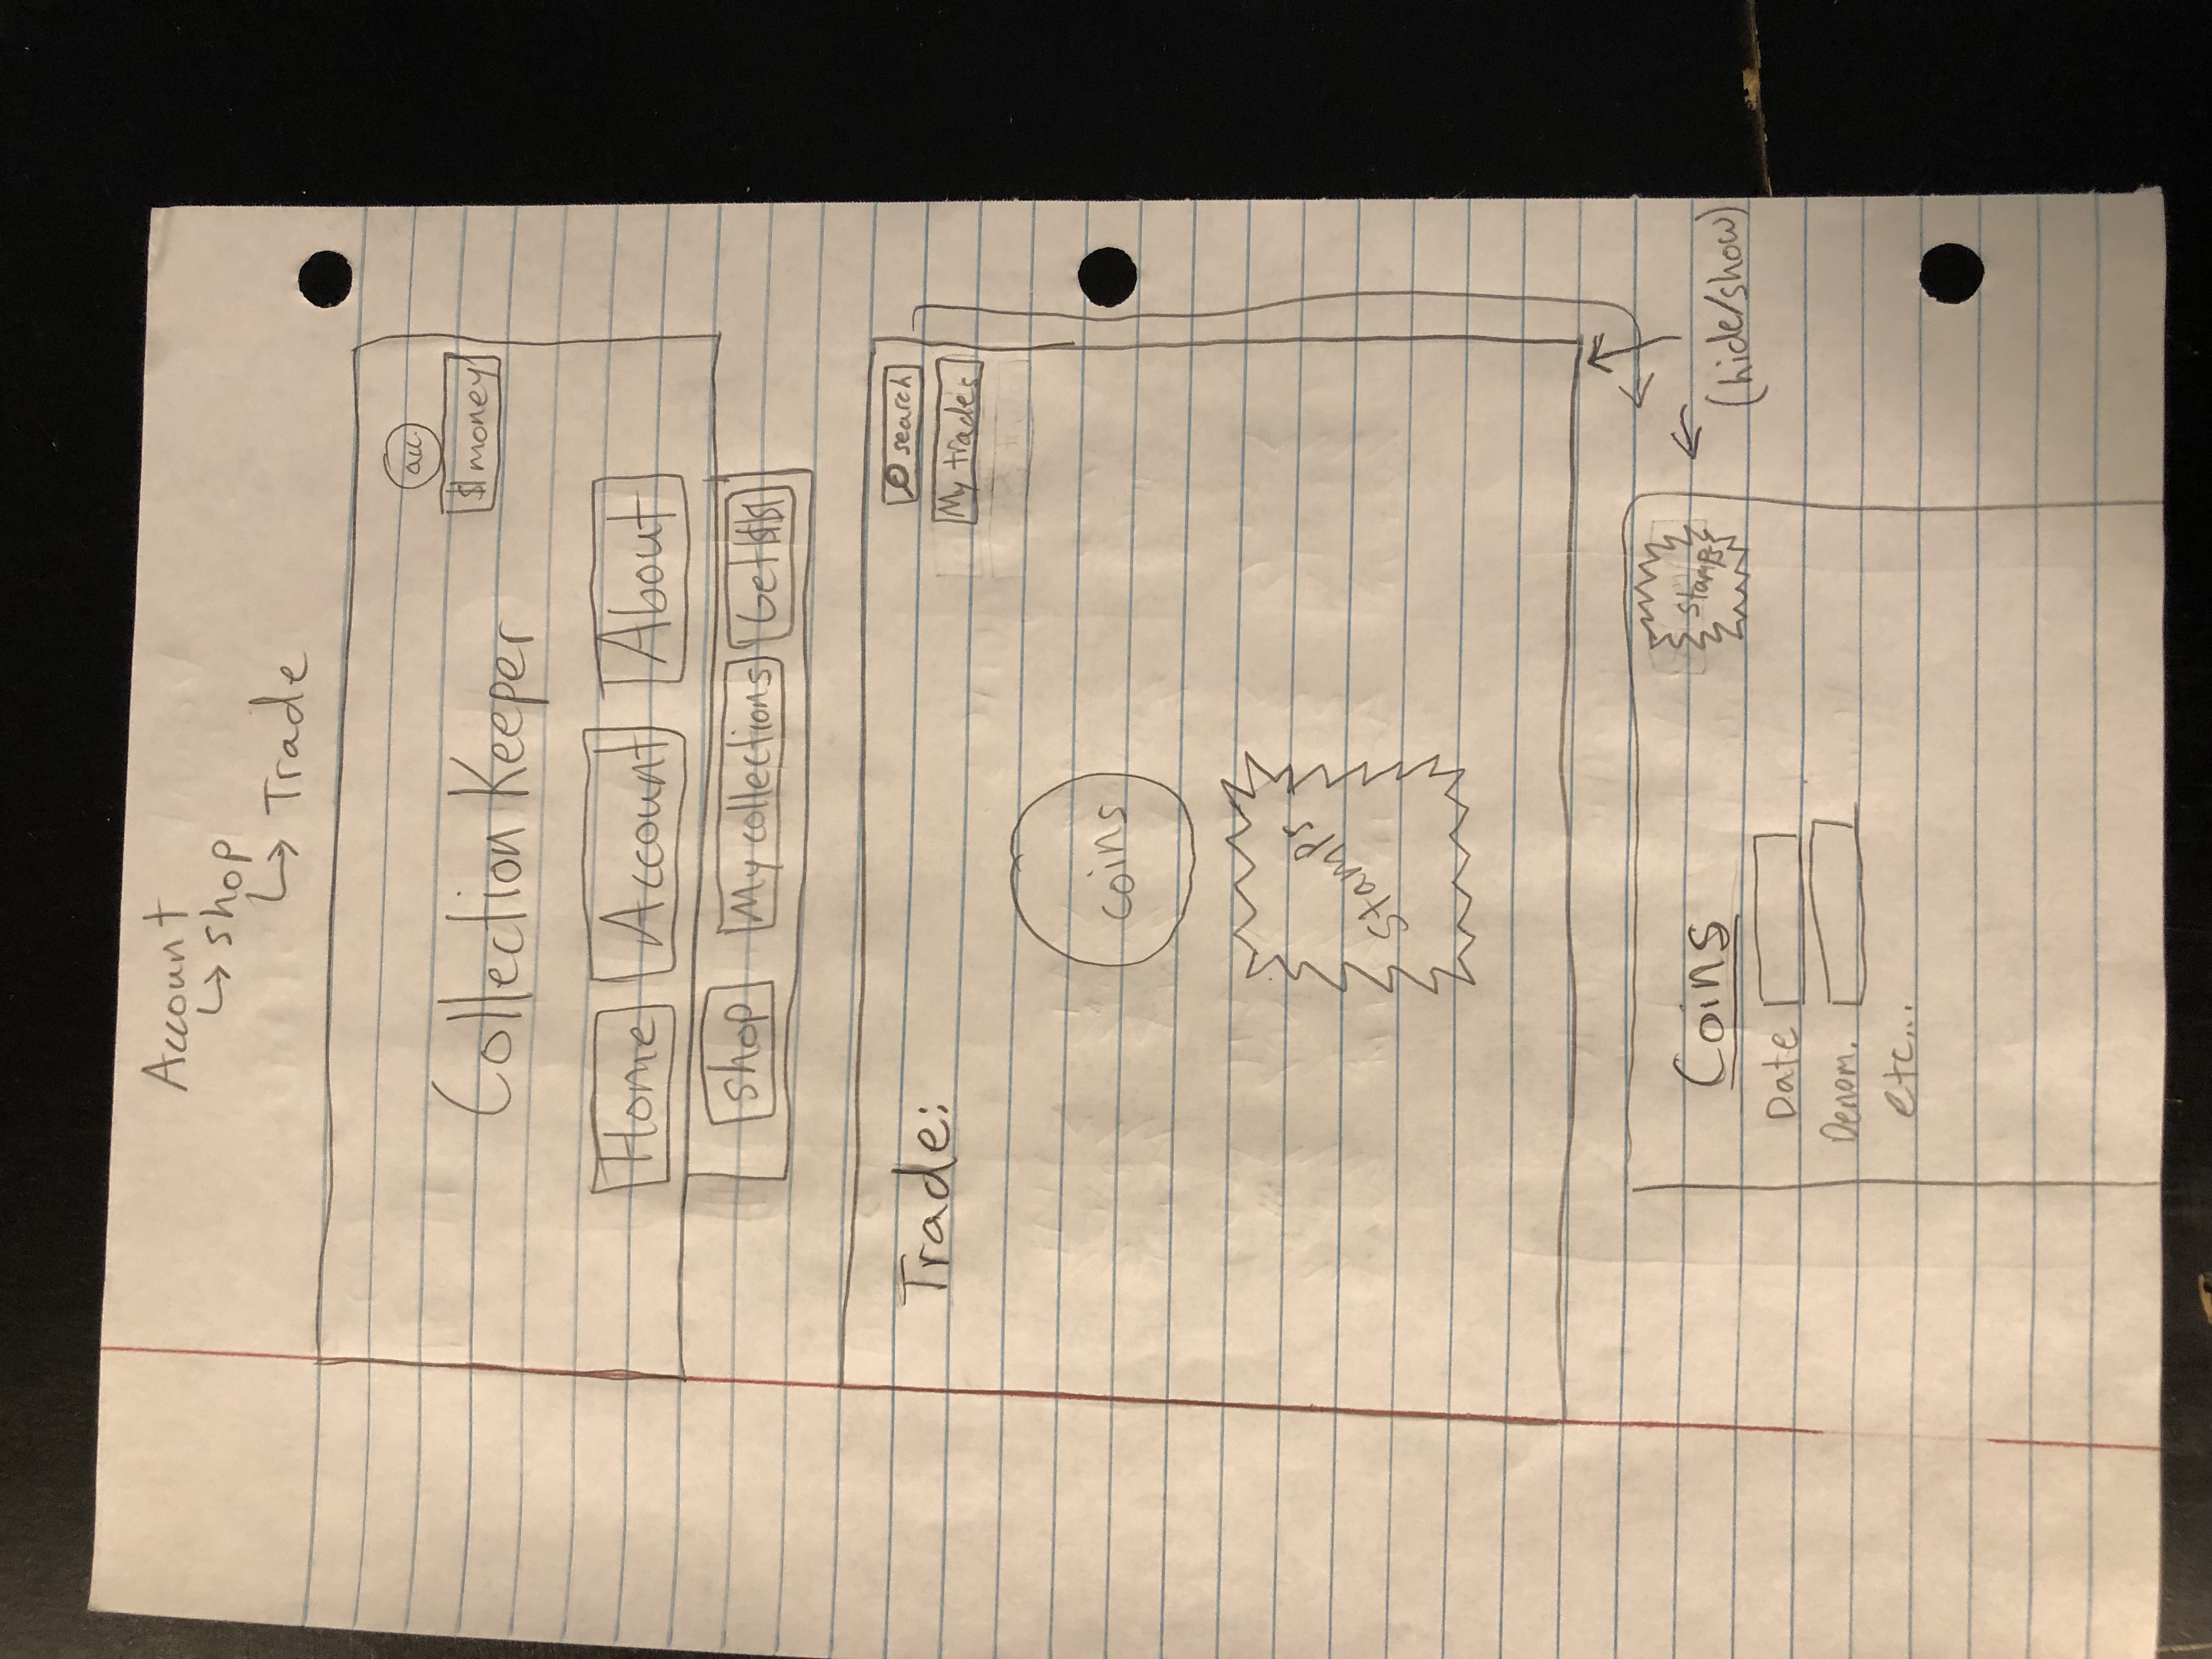 Account
↳ shop
↳ Trade
acc.
$ money
Collection Keeper
Home Account About
shop My collections Get $$
Trade:
search
My trades
coins
Stamps
Coins
Stamps
(hide/show)
Date
Denom.
etc...